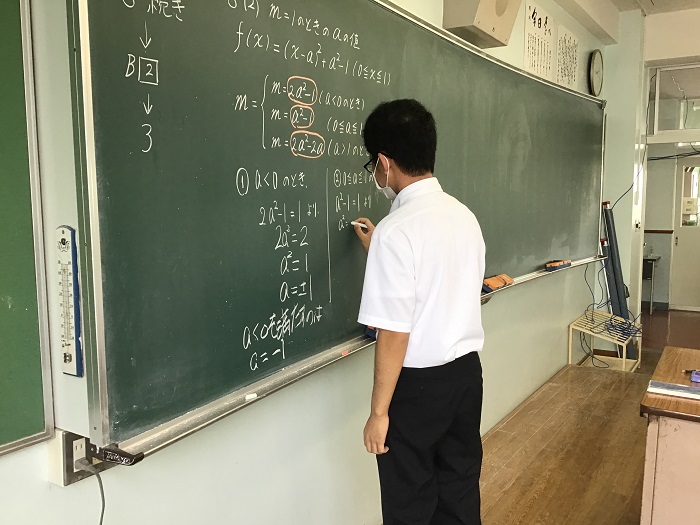 続き
↓
B 2
↓
3
(2) m=1のときのaの値
f(x)=(x-a)²+a²-1 (0≦x≦1)
m=
m=2a²-1 (a<0のとき)
m=a²-1 (0≦a≦1
m=2a²-2a (a>1のと
① a<0のとき,
2a²-1=1 より
2a²=2
a²=1
a=±1
a<0を満たすのは
a=-1
② 0≦a≦1の
a²-1=1 より
a²=